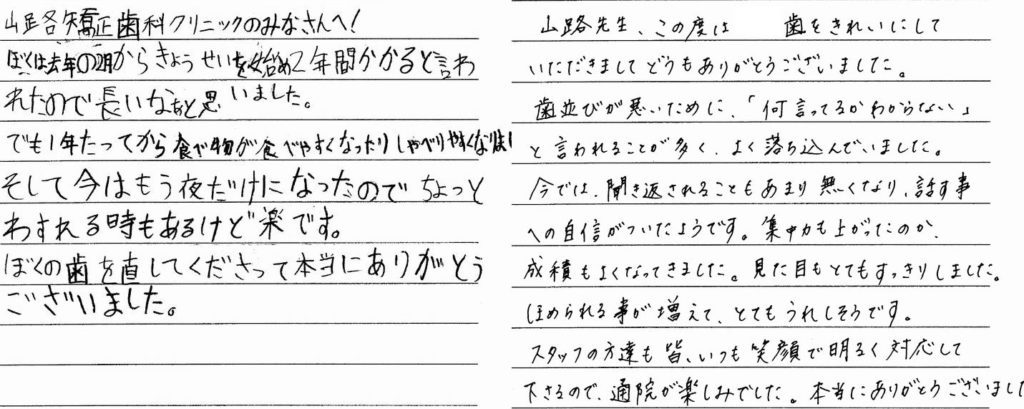 山路矯正歯科クリニックのみなさんへ!
ぼくは去年の2月からきょうせいを始め2年間かかると言わ
れたので長いなぁと思いました。
でも1年たってから食べ物が食べやすくなったりしゃべりやすくなりました!
そして今はもう夜だけになったのでちょっと
わすれる時もあるけど楽です。
ぼくの歯を直してくださって本当にありがとう
ございました。
山路先生、この度は 歯をきれいにして
いただきましてどうもありがとうございました。
歯並びが悪いために、「何言ってるかわからない」
と言われることが多く、よく落ち込んでいました。
今では、聞き返されることもあまり無くなり、話す事
への自信がついたようです。集中力も上がったのか、
成績もよくなってきました。見た目もとてもすっきりしました。
ほめられる事が増えて、とてもうれしそうです。
スタッフの方達も皆、いつも笑顔で明るく対応して
下さるので、通院が楽しみでした。本当にありがとうございました